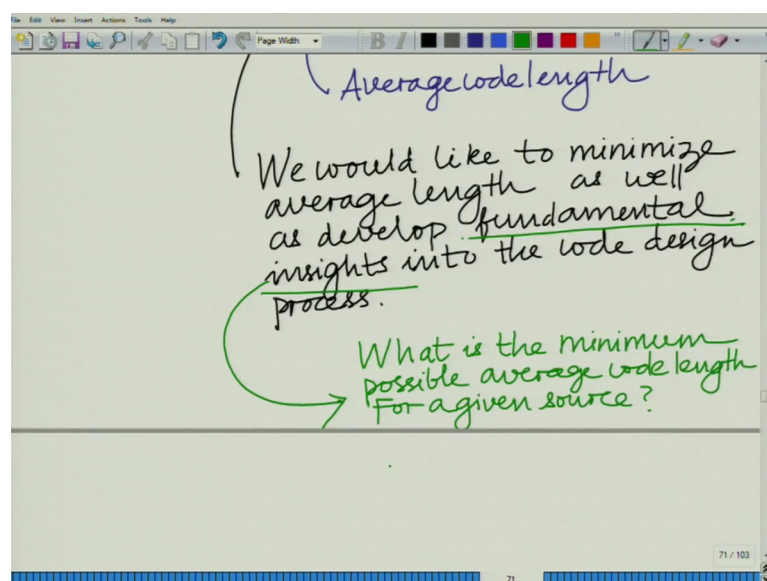 File Edit View Insert Actions Tools Help
Page Width
B I
Average code length
We would like to minimize
average length as well
as develop fundamental
insights into the code design
process.
What is the minimum
possible average code length
For a given source?
71 / 103
71